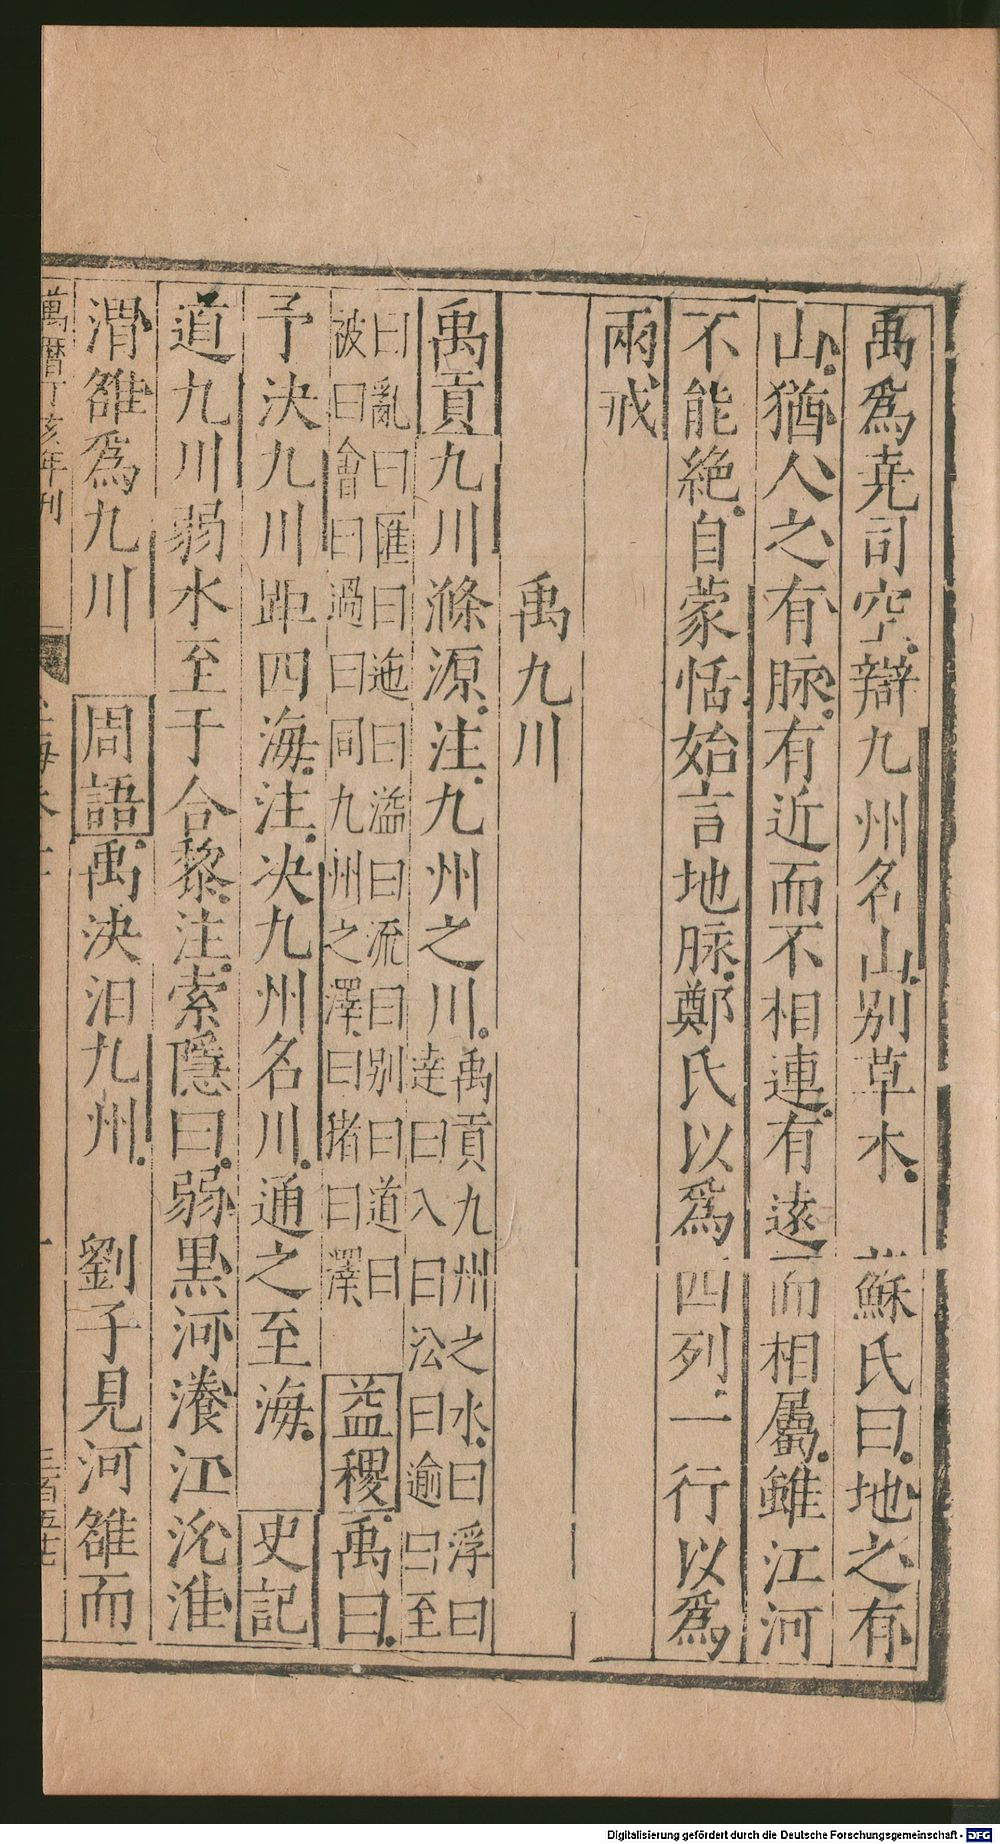 禹爲堯司空辯九州名山別草木 蘇氏曰地之有
山猶人之有脉有近而不相連有遠而相屬雖江河
不能絶自蒙恬始言地脉鄭氏以爲四列一行以爲
兩戒
禹九川
禹貢九川滌源注九州之川禹貢九州之水曰浮曰
達曰入曰㳂曰逾曰至
曰亂曰匯曰迤曰溢曰流曰别曰道曰
被曰會曰過曰同九州之澤曰豬曰澤 益稷禹曰
予決九川距四海注决九州名川通之至海 史記
道九川弱水至于合黎注索隱曰弱黒河瀁江沇淮
渭雒爲九川 周語禹決汩九州 劉子見河雒而
萬曆丁亥年刊
Digitalisierung gefördert durch die Deutsche Forschungsgemeinschaft - DFG